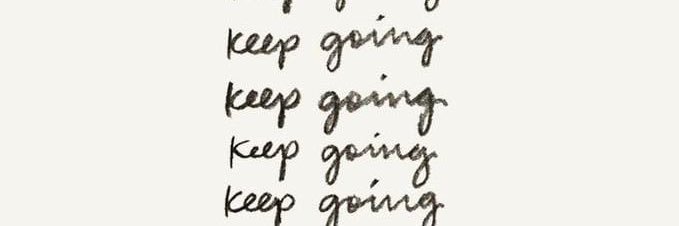 keep going
keep going
keep going
keep going